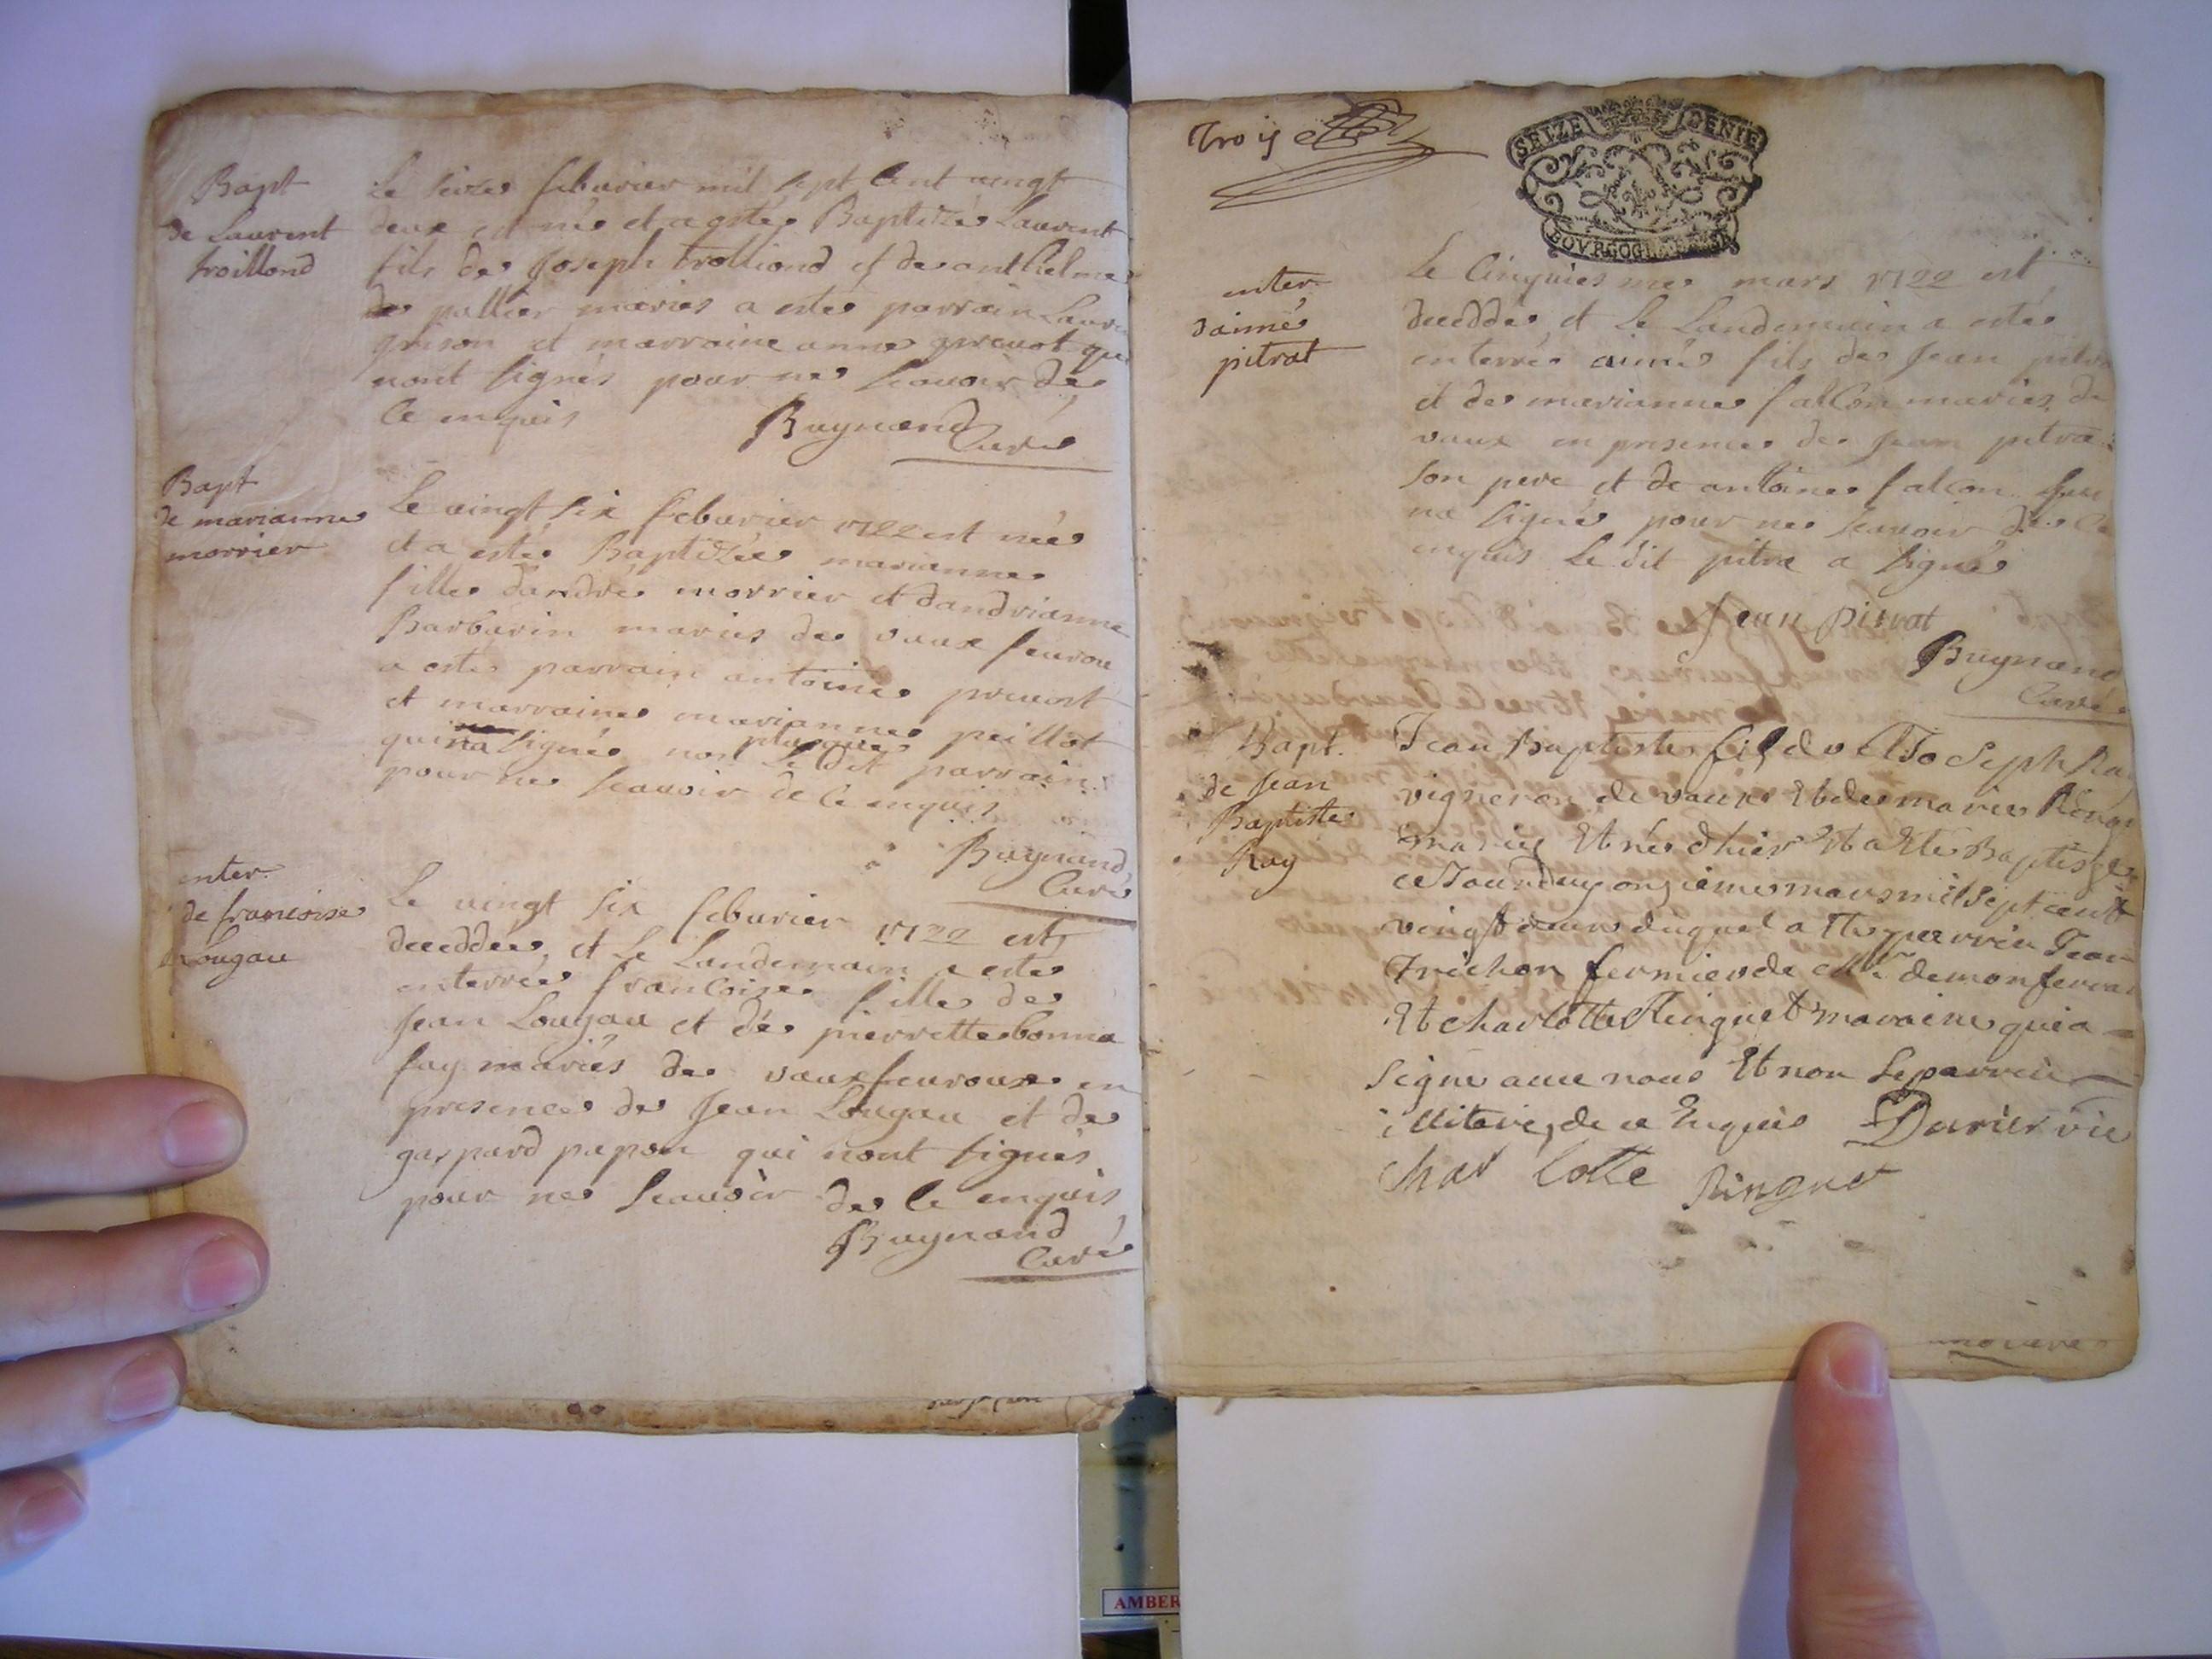 Bapt
de Laurent
troillond
Le seize feburier mil sept cent vingt
deux est né et a esté Baptizé Laurent
fils de Joseph trolliond et de anthelme
de pollier mariés a esté parrain Laur
grison et marraine anne prevot qui
nont signés pour ne scavoir de
ce enquis
Buynand
Curé
Bapt
de marianne
morrier
Le vingt six feburier 1722 est née
et a estée Baptizée marianne
fille dandré morrier et dandrianne
Barbarin mariés de vaux feurou
a esté parrain antoine prevost
et marraine marianne peillot
qui na signée non plus que Le dit parrain
pour ne scavoir de ce enquis
Buynand
Curé
enter.
de francoise
Lougau
Le vingt six feburier 1722 est
deceddée et Le Landemain a esté
enterrée francoise fille de
Jean Lougau et de pierrette bonna
fay mariés de vauxfeuroux en
presence de Jean Lougau et de
gaspard papon qui nont signés
pour ne scavoir de ce enquis
Buynand
Curé
Trois
SEIZE DENIE
BOVRGOG
enter.
daimé
pitrat
Le Cinquiesme mars 1722 est
deceddé et Le Landemain a esté
enterré aimé fils de Jean pitra
et de marianne falcon mariés de
vaux en presence de Jean pitra
son pere et de antoine falcon qui
na signé pour ne scavoir de ce
enquis Le dit pitra a signé
Jean pitrat
Buynand
Curé
Bapt.
de Jean
Baptiste
Ray
Jean Baptiste fils de Joseph Ra
vigneron de vaux et de marie Ring
mariés Et né d'hier Et a Eté Baptisze
ce Jourduy onzieme mars mil sept cent
vingt deux duquel a Eté parrein Jean
Trichon fermier de Mr demonferra
Et charlotte Ringuet maraine qui a
signé avec nous Et non Le parrein
illiteré, de ce Enquis Durier vic
Char lotte Ringuet